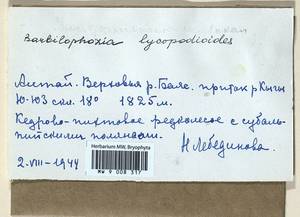 Barbilophozia lycopodioides
Алтай. Верховья р. Баяс. приток р Кыги
Ю-ЮЗ скл. 18° 1825 м.
Кедрово-пихтовое редколесье с субаль-
пийскими полянами.
Н Лебединова.
2.VIII-1944
Herbarium MW, Bryophyta
MW 9 008 317